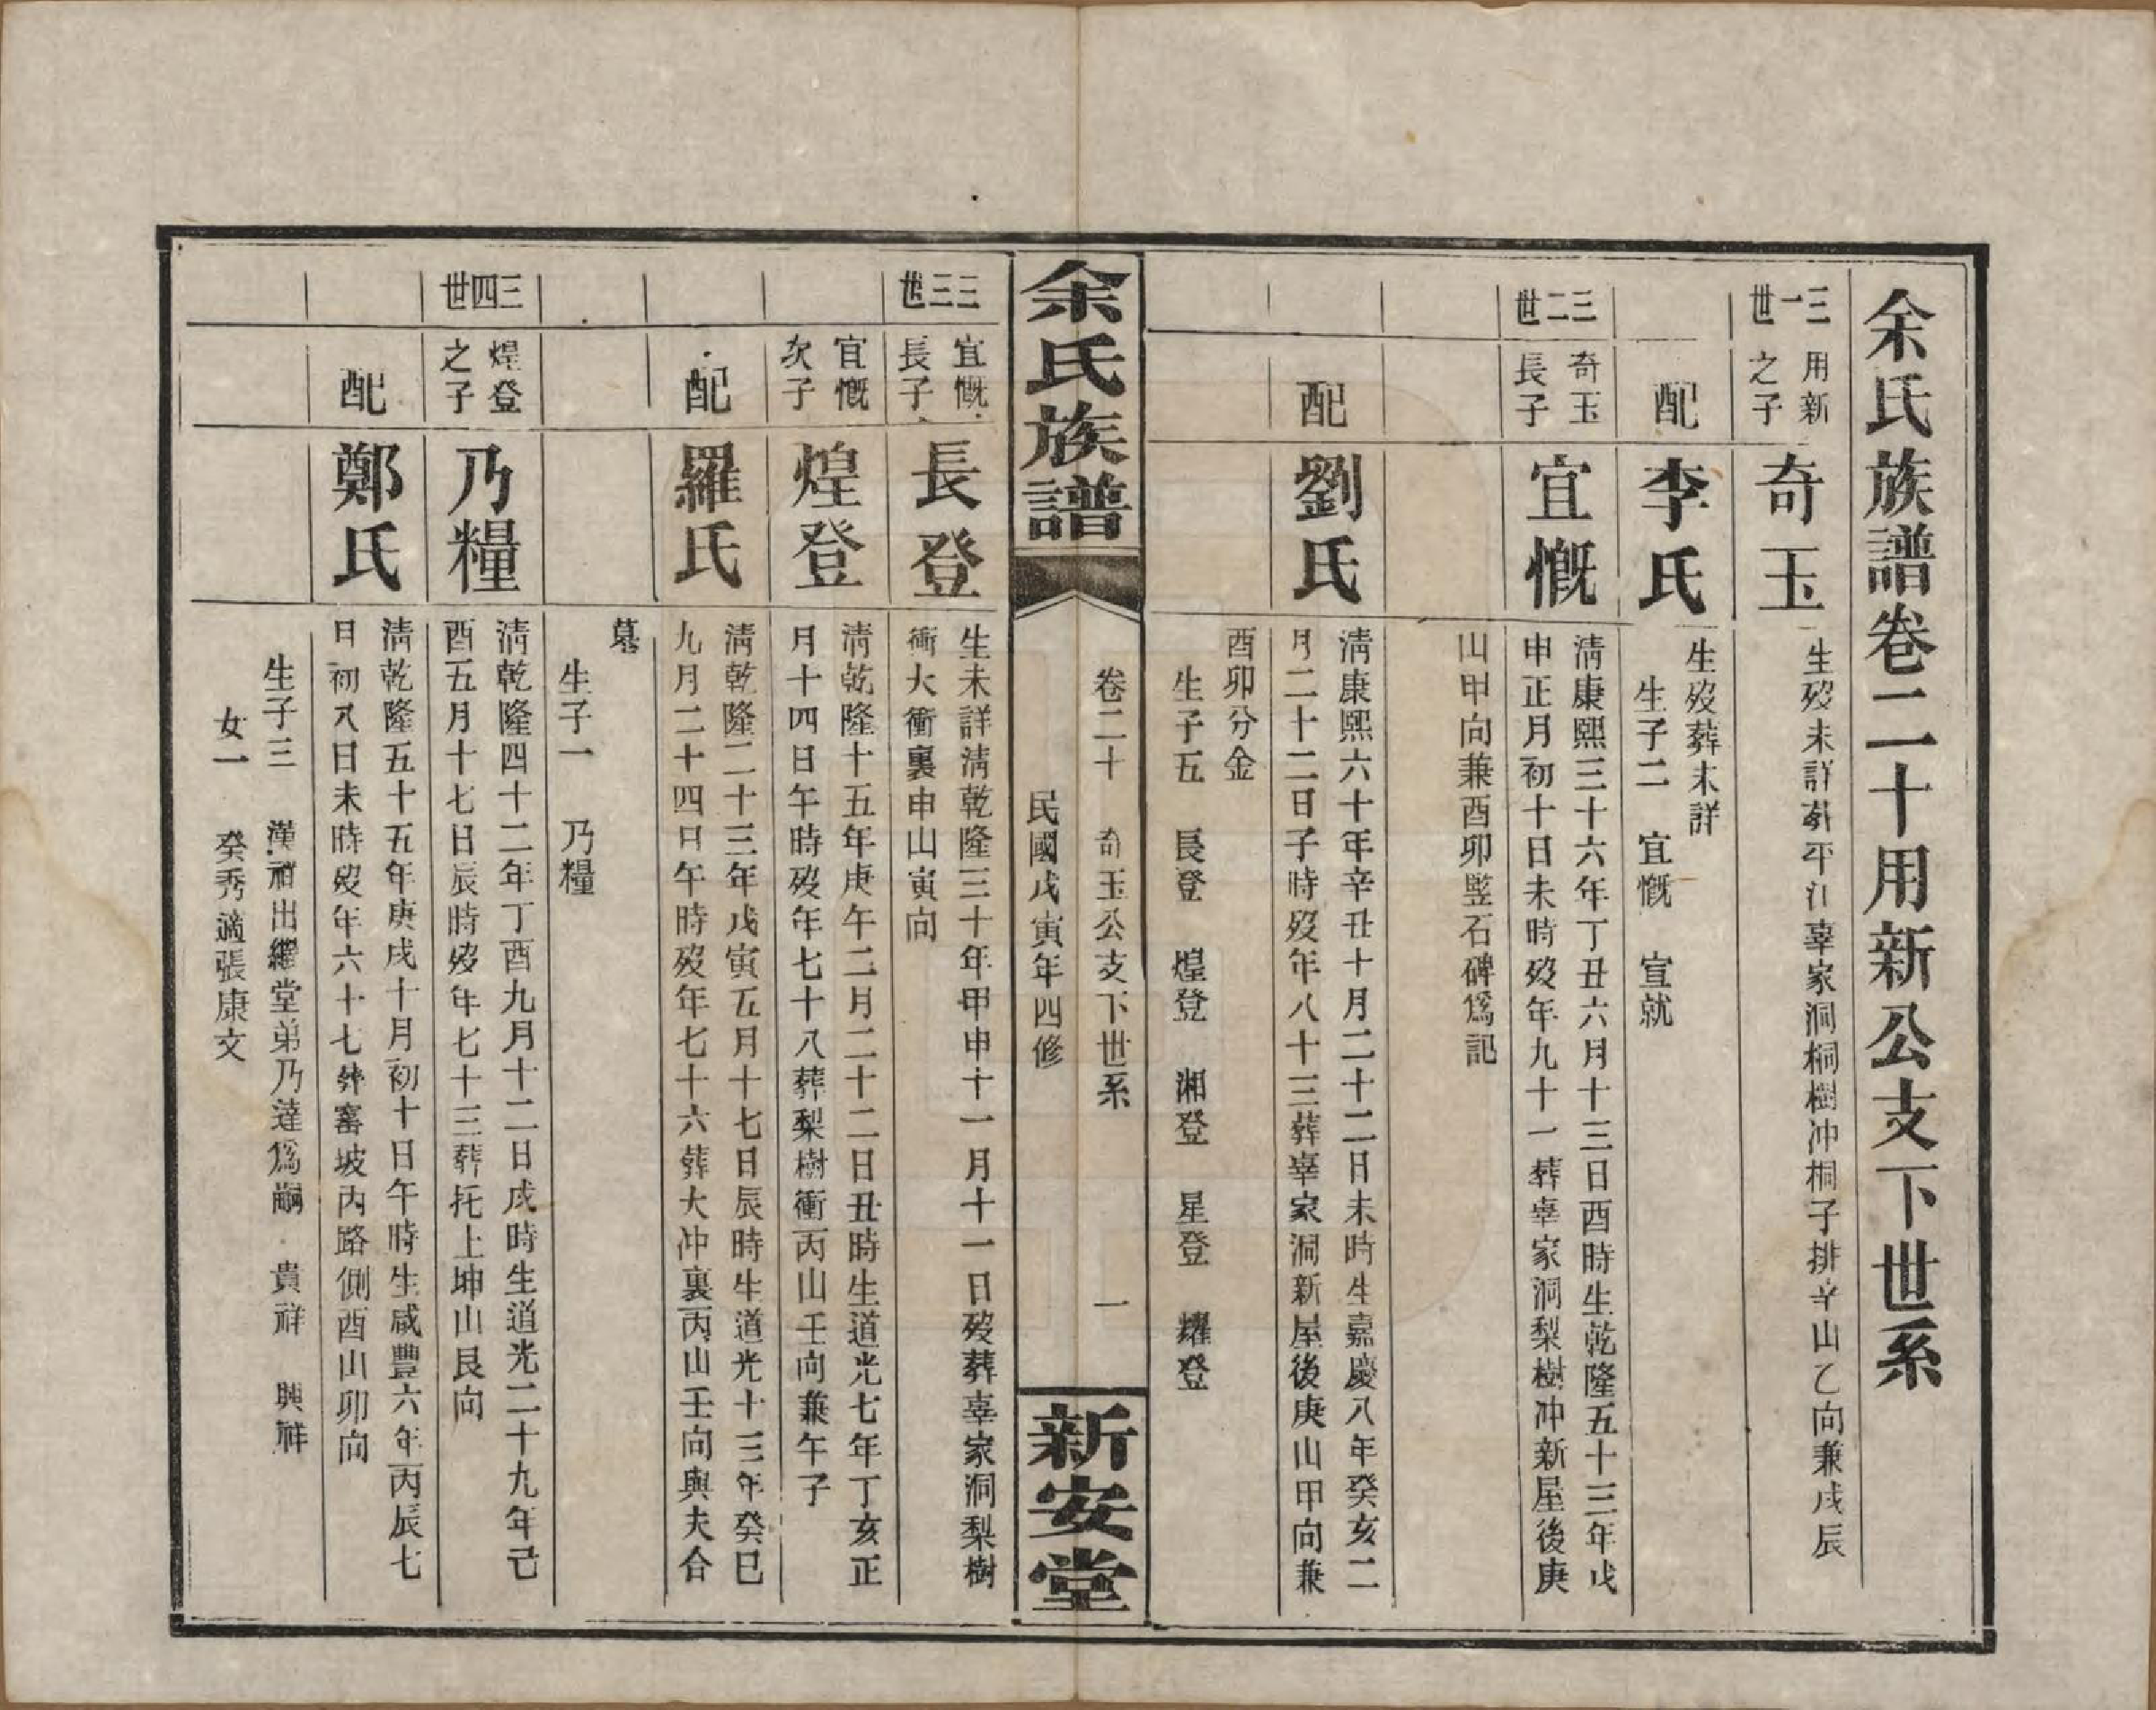 余氏族譜卷二十用新公支下世系
三一世
用新
之子
奇玉
生歿未詳葬平江辜家洞桐樹冲桐子排辛山乙向兼戌辰
配
李氏
生歿葬未詳
生子二　宜慨　宣就
三二世
奇玉
長子
宜慨
淸康熙三十六年丁丑六月十三日酉時生乾隆五十三年戊
申正月初十日未時歿年九十一葬辜家洞梨樹冲新屋後庚
山甲向兼酉卯竪石碑爲記
配
劉氏
淸康熙六十年辛丑十月二十二日未時生嘉慶八年癸亥二
月二十二日子時歿年八十三葬辜家洞新屋後庚山甲向兼
酉卯分金
生子五　長登　煌登　湘登　星登　耀登
余氏族譜
卷二十　奇玉公支下世系　一
民國戊寅年四修
新安堂
三三世
宜慨
長子
長登
生未詳淸乾隆三十年甲申十一月十一日歿葬辜家洞梨樹
衝大衝裏申山寅向
宜慨
次子
煌登
淸乾隆十五年庚午二月二十二日丑時生道光七年丁亥正
月十四日午時歿年七十八葬梨樹衝丙山壬向兼午子
配
羅氏
淸乾隆二十三年戊寅五月十七日辰時生道光十三年癸巳
九月二十四日午時歿年七十六葬大冲裏丙山壬向與夫合
墓
生子一　乃糧
三四世
煌登
之子
乃糧
淸乾隆四十二年丁酉九月十二日戌時生道光二十九年己
酉五月十七日辰時歿年七十三葬托上坤山艮向
配
鄭氏
淸乾隆五十五年庚戌十月初十日午時生咸豐六年丙辰七
日初八日未時歿年六十七葬窰坡內路側酉山卯向
生子三　漢祥出繼堂弟乃達爲嗣　貴祥　興祥
女一　癸秀適張康文